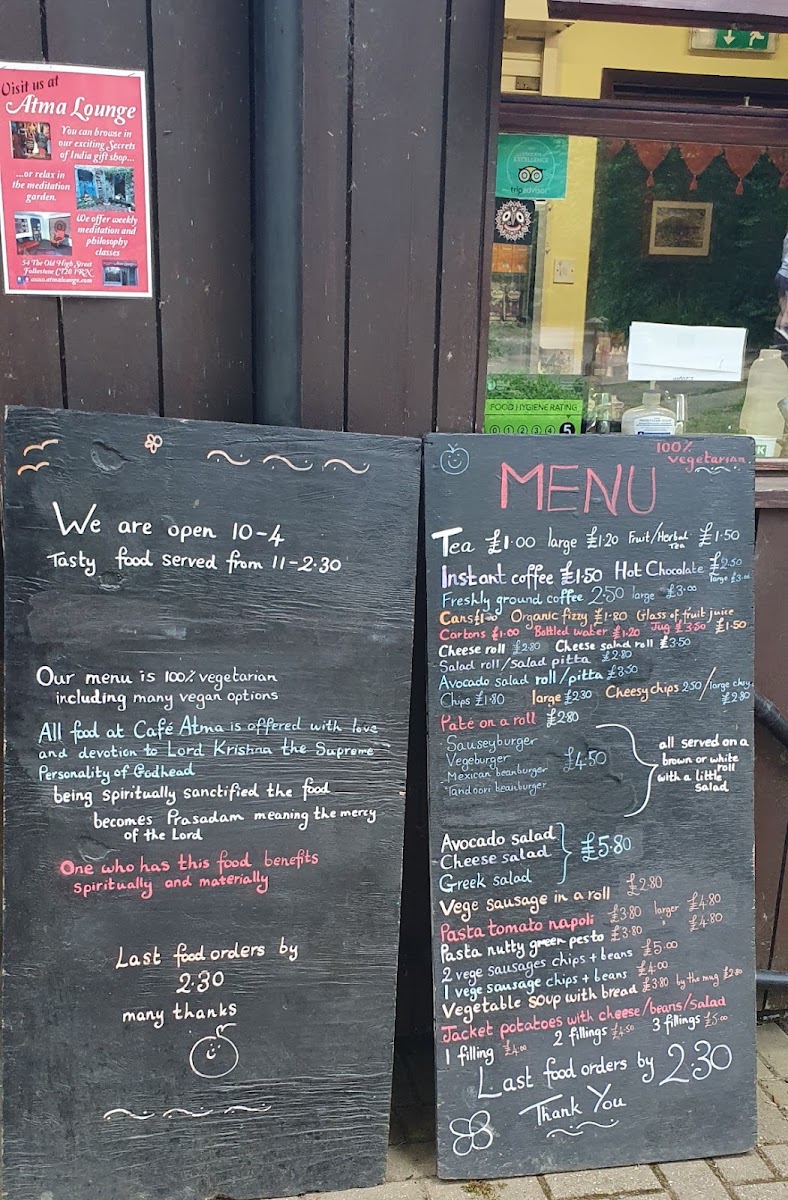 Visit us at
Atma Lounge
You can browse in
our exciting Secrets
of India gift shop...
...or relax in
the meditation
garden.
We offer weekly
meditation and
philosophy
classes
54 The Old High Street
Folkestone CT20 1RN
www.atmalounge.com
EXCELLENCE
tripadvisor
FOOD HYGIENE RATING
0 1 2 3 4 5
We are open 10-4
Tasty food served from 11-2.30
Our menu is 100% vegetarian
including many vegan options
All food at Café Atma is offered with love
and devotion to Lord Krishna the Supreme
Personality of Godhead
being spiritually sanctified the food
becomes Prasadam meaning the mercy
of the Lord
One who has this food benefits
spiritually and materially
Last food orders by
2.30
many thanks
100%
vegetarian
MENU
Tea £1.00 large £1.20 Fruit/Herbal Tea £1.50
Instant coffee £1.50 Hot Chocolate £2.50
large £3.00
Freshly ground coffee 2.50 large £3.00
Cans £1.00 Organic fizzy £1.80 Glass of fruit juice
£1.50
Cartons £1.00 Bottled water £1.20 Jug £3.50
Cheese roll £2.80 Cheese salad roll £3.50
Salad roll/salad pitta £2.80
Avocado salad roll/pitta £3.50
Chips £1.80 large £2.30 Cheesy chips 2.50/large chsy
£2.80
Paté on a roll £2.80
Sauseyburger
Vegeburger
Mexican beanburger
Tandoori beanburger
£4.50
all served on a
brown or white
roll
with a little
salad
Avocado salad
Cheese salad
Greek salad
£5.80
Vege sausage in a roll £2.80
Pasta tomato napoli £3.80 larger £4.80
Pasta nutty green pesto £3.80 " £4.80
2 vege sausages chips + beans £5.00
1 vege sausage chips + beans £4.00
Vegetable soup with bread £3.80 by the mug £2.80
Jacket potatoes with cheese/beans/salad
1 filling £4.00 2 fillings £4.50 3 fillings £5.00
Last food orders by 2.30
Thank You